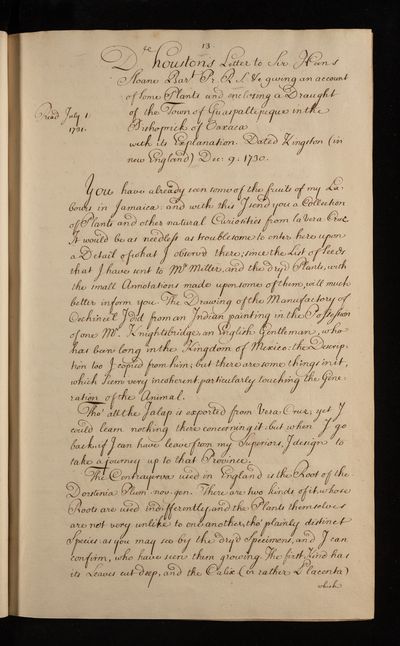 13
Dr. Houstons Letter to Sir Hans
Sloane Bart. Pr. R. S. &c giving an account
of some Plants and enclosing a Draught
Read July 1
1731.
of the Town of Guaxallepeque in the
Bishoprick of Oaxaca
with its Explanation. Dated Kingston (in
new England) Dec: 9. 1730.
You have already seen some of the fruits of my La-
bours in Jamaica: and with this I send you a Collection
of Plants and other natural Curiosities from la Vera Cruz.
It would be as needless as troublesome to enter here upon
a Detail of what I observ'd there; since the List of seeds
that I have sent to Mr Miller, and the dry'd Plants, with
the small Annotations made upon some of them, will much
better inform you. The Drawing of the Manufactory of
Cochineel I did from an Indian painting in the Possession
of one Mr. Knightsbridge, an English Gentleman, who
has been long in the Kingdom of Mexico: the Descrip-
tion too I copied from him; but there are some things in it,
which seem very incoherent, particularly touching the Gene-
ration of the Animal.
Tho' all the Jalap is exported from Vera-Cruz; yet I
could learn nothing there concerning it: but when I go
back, if I can have leave from my Superiors, I design to
take a journey up to that Province.
The Contrayerva used in England is the Root of the
Dorstenia Plum. nov. gen. There are two kinds of it, whose
Roots are used indifferently, and the Plants themselves
are not very unlike to one another, tho' plainly distinct
Species: as you may see by the dry'd Specimens, and I can
confirm, who have seen them growing. The first Kind has
its Leaves cut deep, and the Calix (or rather Placenta)
which